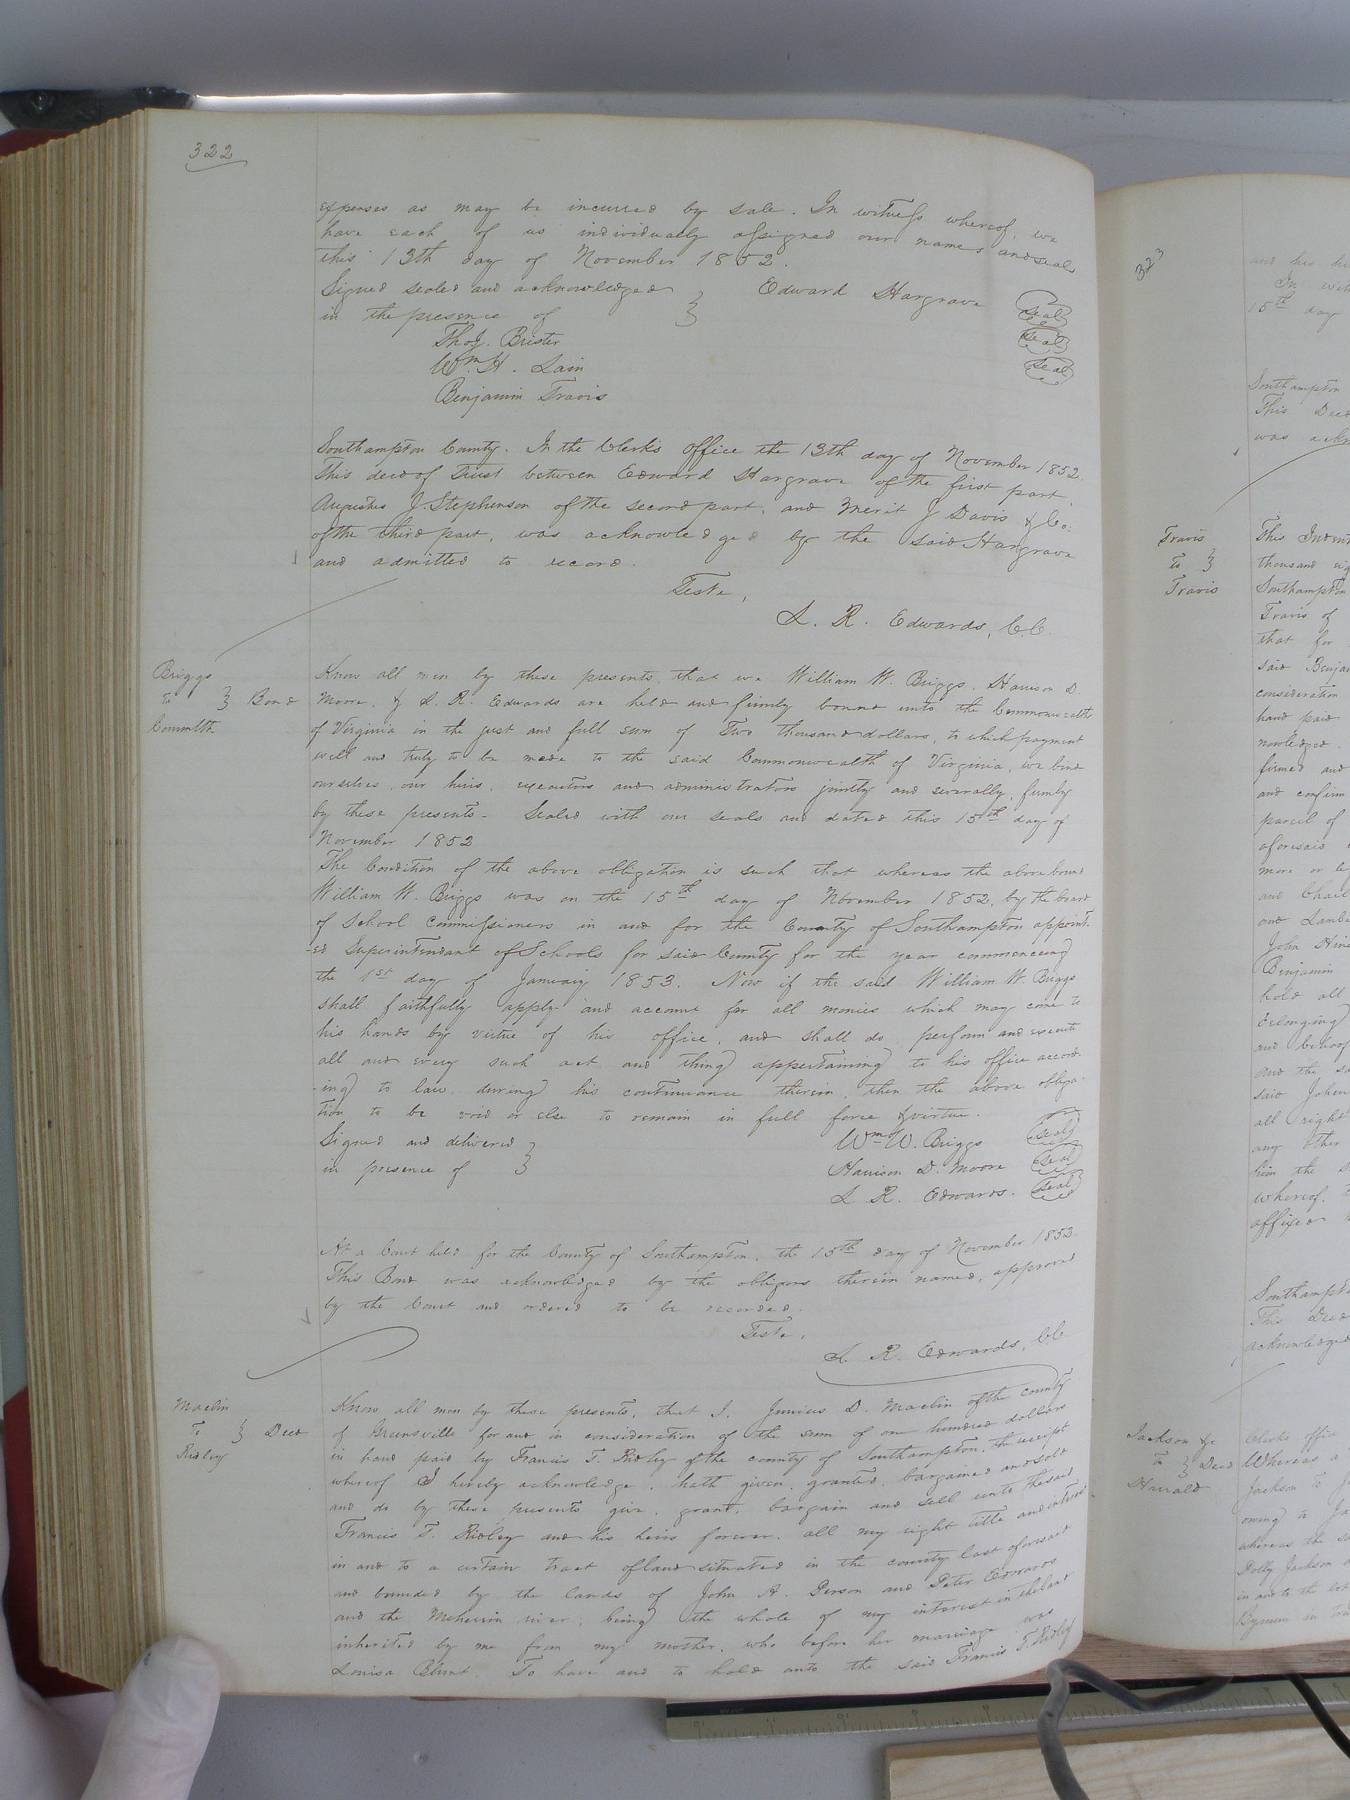 322
expenses as may be incurred by sale. In witness whereof, we
have each of us individually assigned our names and seals
this 13th day of November 1852.
Signed sealed and acknowledged } Edward Hargrave (Seal)
in the presence of (Seal)
Thos J. Brister (Seal)
Wm. H. Lain
Benjamin Travis
Southampton County. In the Clerk's Office the 13th day of November 1852.
This deed of Trust between Edward Hargrave of the first part,
Augustus J. Stephenson of the second part, and Merit J Davis & Co.
of the third part, was acknowledged by the said Hargrave
and admitted to record.
Teste,
L. R. Edwards, C.C.
Briggs
to } Bond
Commlth
Know all men by these presents, that we William W. Briggs, Harrison D.
Moore, & L. R. Edwards are held and firmly bound unto the Commonwealth
of Virginia in the just and full sum of Two thousand dollars, to which payment
well and truly to be made to the said Commonwealth of Virginia, we bind
ourselves, our heirs, executors and administrators jointly and severally, firmly
by these presents. Sealed with our seals and dated this 15th day of
November 1852
The Condition of the above obligation is such that whereas the above bound
William W. Briggs was on the 15th day of November 1852, by the board
of School Commissioners in and for the County of Southampton appoint-
-ed Superintendant of Schools for said County for the year commencing
the 1st day of January 1853. Now if the said William W. Briggs
shall faithfully apply and account for all monies which may come to
his hands by virtue of his office, and shall do perform and execute
all and every such act and thing appertaining to his office accord-
-ing to law during his continuance therein, then the above obliga-
tion to be void or else to remain in full force & virtue.
Signed and delivered } Wm W. Briggs (Seal)
in presence of Harrison D. Moore (Seal)
L R. Edwards. (Seal)
At a Court held for the County of Southampton, the 15th day of November 1852.
This Bond was acknowledged by the obligors therein named, approved
by the Court and ordered to be recorded.
Teste,
L R. Edwards, CC
Maclin
to } Deed
Ridley
Know all men by these presents, that I, Junius D. Maclin of the county
of Greensville for and in consideration of the sum of one hundred dollars
in hand paid by Francis T. Ridley of the county of Southampton, the receipt
whereof I hereby acknowledge, hath given, granted, bargained and sold
and do by these presents give, grant, bargain and sell unto the said
Francis T. Ridley and his heirs forever, all my right title and interest
in and to a certain tract of land situated in the county last aforesaid
and bounded by the lands of John A. Person and Peter Edwards
and the Meherrin river; being the whole of my interest in the land
inherited by me from my mother, who before her marriage was
Louisa Blunt. To have and to hold unto the said Francis T. Ridley
323
and his
In wit
15th day
Southampton
This Deed
was
Travis
to }
Travis
This Indent
thousand
Southampton
Travis of
that for
said Benja
consideration
hand paid
nowledged
firmed and
and confirm
parcel of
aforesaid
more or le
and
and
John
Benjamin
hold all
belonging
and behoof
and the
said
all right
any other
him the
whereof,
affixed
Southampt
This Deed
acknowledged
Jackson &c
to } Deed
Harrald
Clerks offic
Whereas a
Jackson to
owing a
whereas the
Dolly Jackson
in and to the
Bynum in